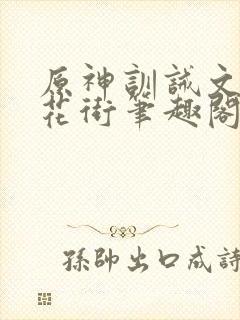 原神訓誡文
花街筆趣閣
孫帥出口成詩